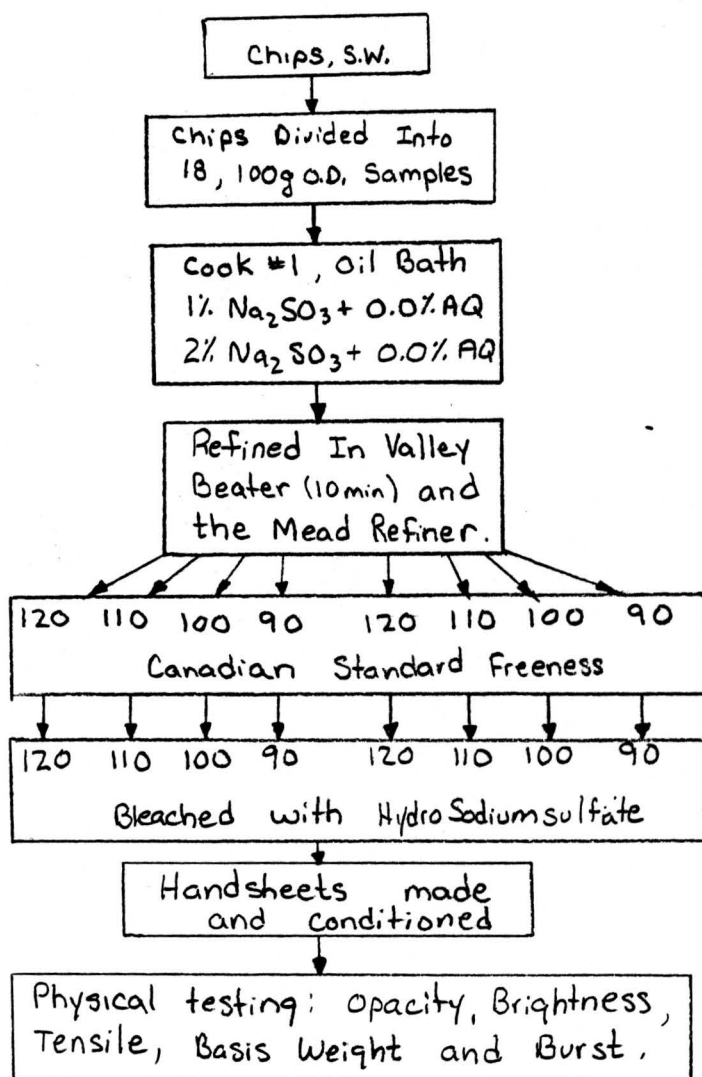 Chips, S.W.
Chips Divided Into
18, 100g O.D. Samples
Cook #1, Oil Bath
1% Na₂SO₃ + 0.0% AQ
2% Na₂SO₃ + 0.0% AQ
Refined In Valley
Beater (10min) and
the Mead Refiner.
120 110 100 90 120 110 100 90
Canadian Standard Freeness
120 110 100 90 120 110 100 90
Bleached with HydroSodiumsulfate
Handsheets made
and conditioned
Physical testing: Opacity, Brightness,
Tensile, Basis Weight and Burst.